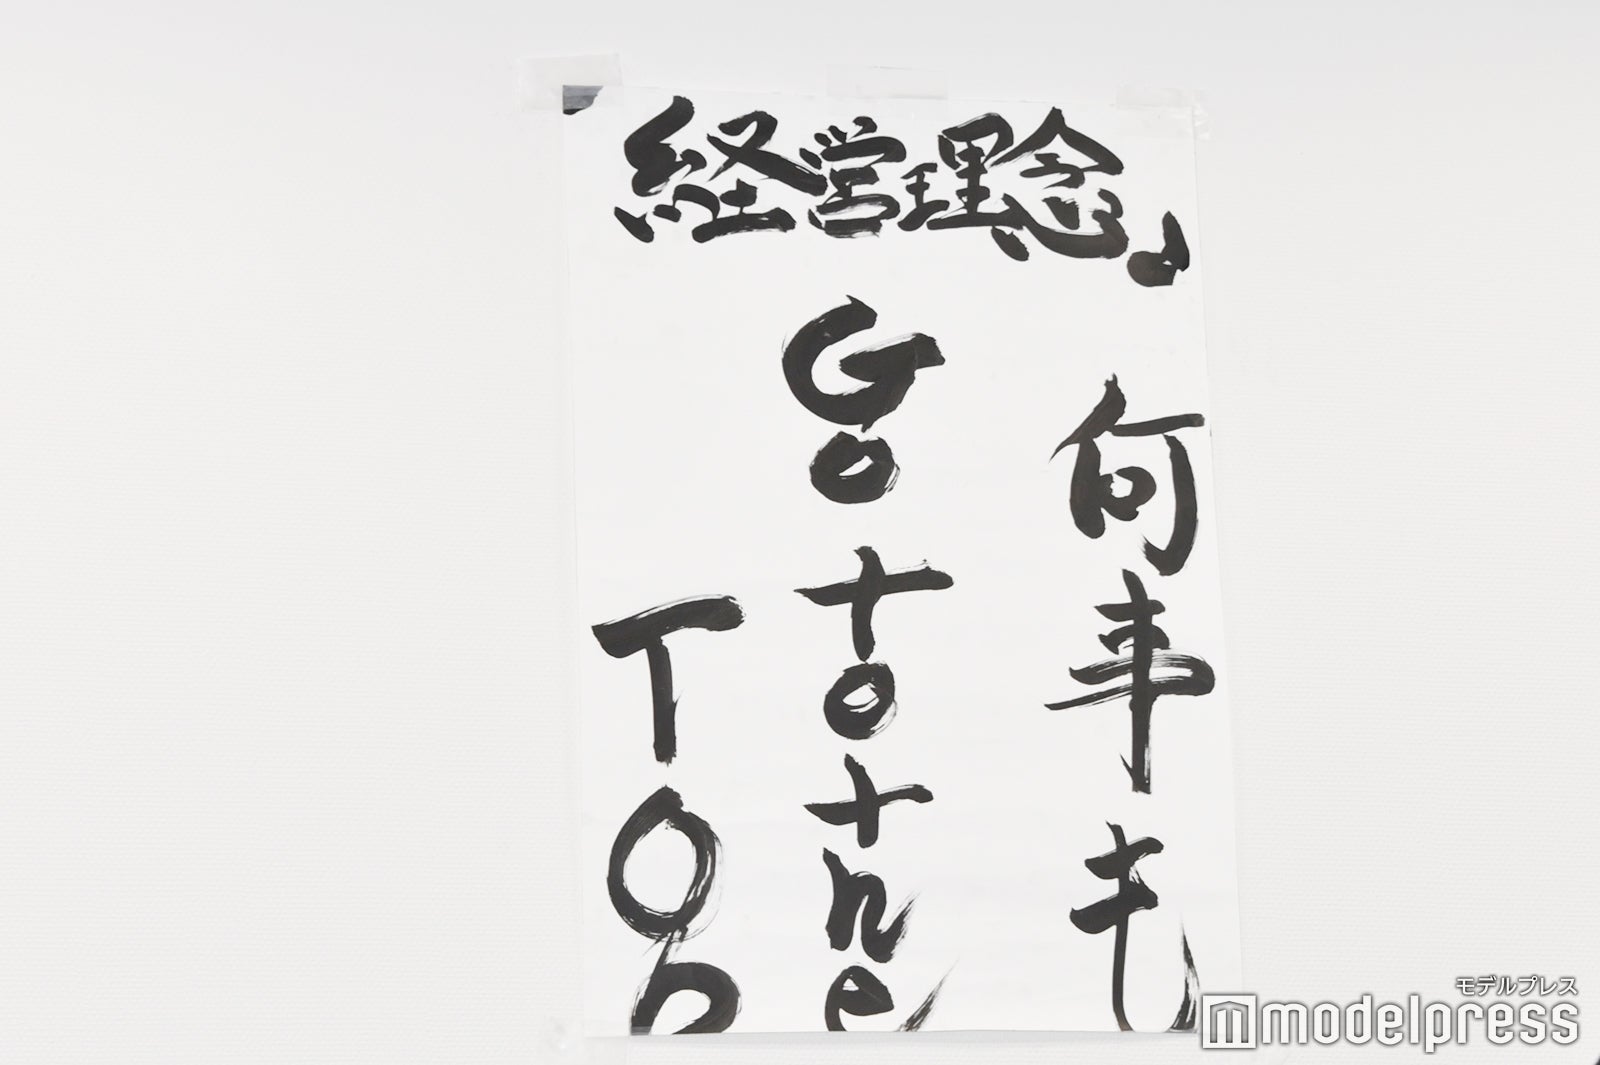 経営理念」
何事も
Go to the
Top
モデルプレス
modelpress